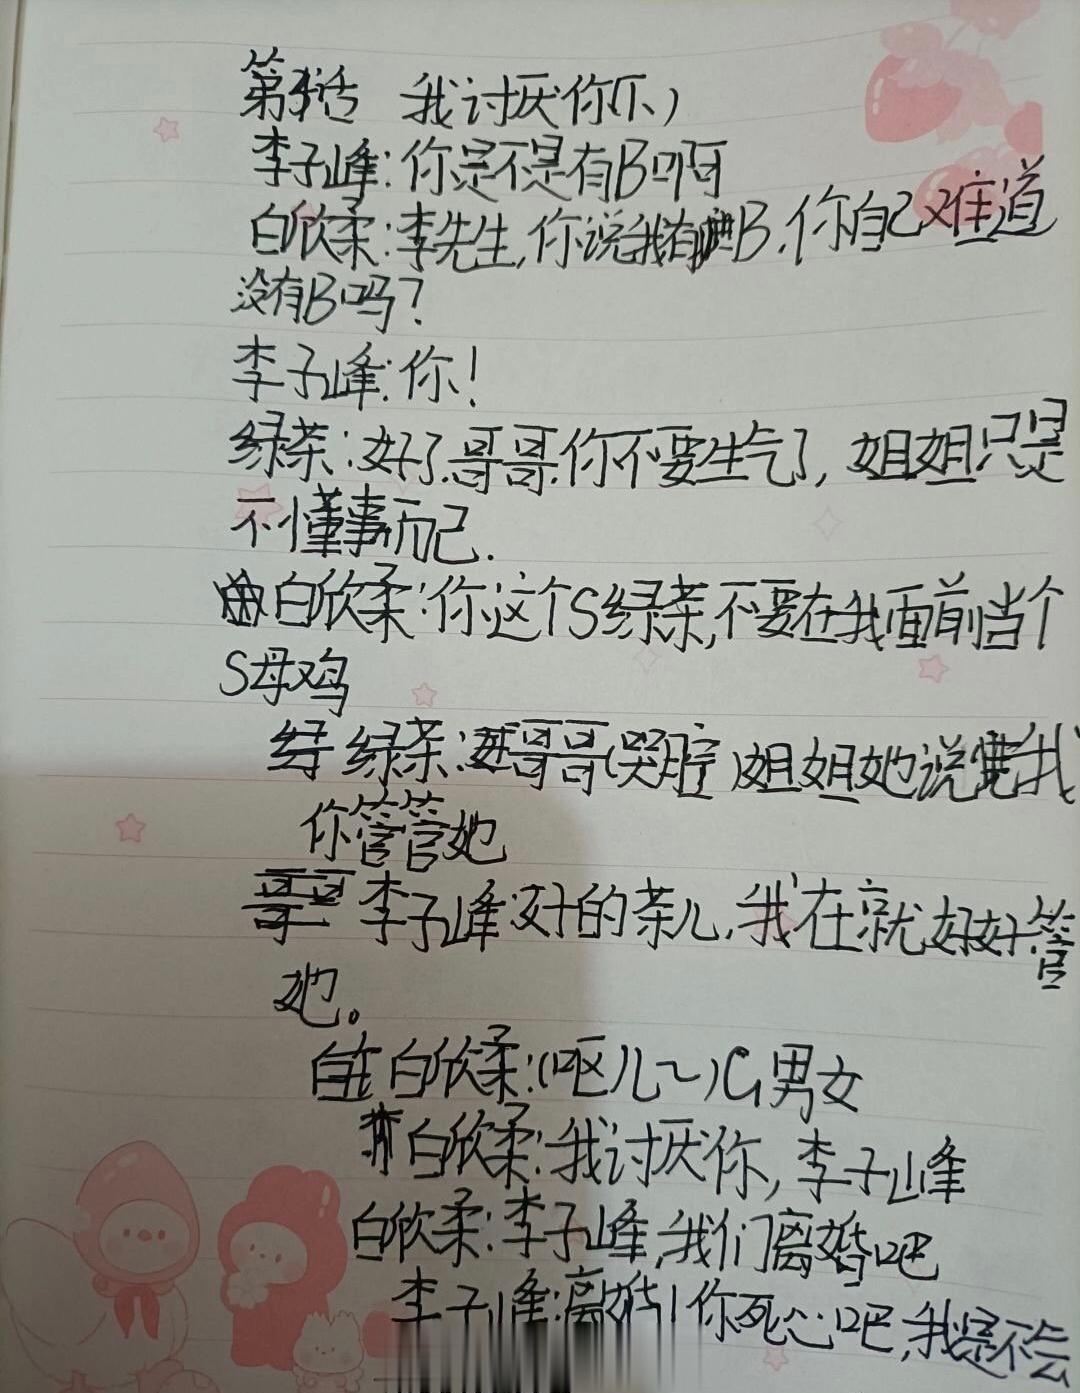 第话 我讨厌你(下)
李子峰:你是不是有B啊
白欣柔:李先生,你说我有B,你自己又难道
没有B吗?
李子峰:你!
绿茶:好了,哥哥,你不要生气了,姐姐只是
不懂事而己.
白欣柔:你这个S绿茶,不要在我面前当个
S母鸡
绿茶:哥哥(哭腔)姐姐她说我
你管管她
李子峰:好的茶儿,我在就好好管
她。
白欣柔:(呕儿~)G男女
白欣柔:我讨厌你,李子峰
白欣柔:李子峰,我们离婚吧
李子峰:离婚!你死心吧,我是不会